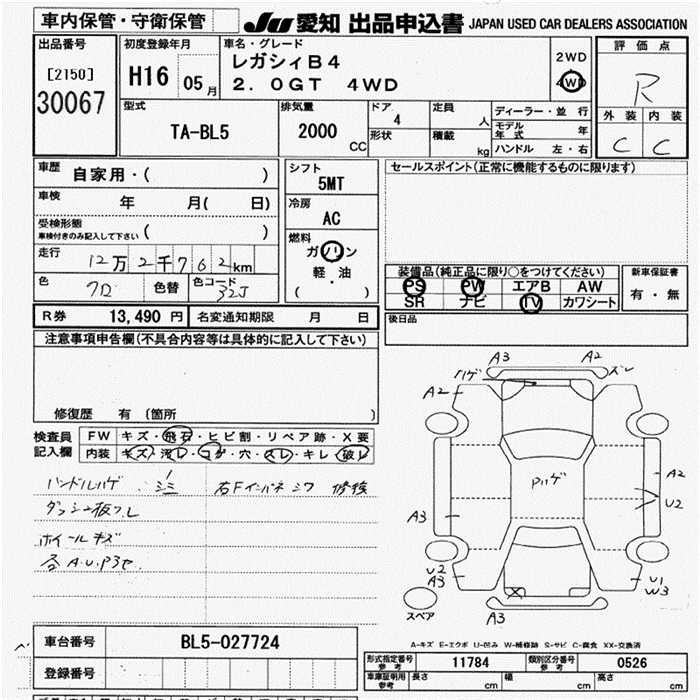 車内保管・守衛保管
JU 愛知 出品申込書 JAPAN USED CAR DEALERS ASSOCIATION
出品番号
[2150]
30067
初度登録年月
H16 05月
車名・グレード
レガシィB4
2.0GT 4WD
2WD
4WD
評価点
R
外装 内装
C C
型式
TA-BL5
排気量
2000 CC
ドア
4
形状
定員
人
積載
kg
ディーラー・並行
モデル年式 年
ハンドル 左・右
車歴
自家用・( )
車検
年 月( 日)
受検形態
車検付きのみ記入して下さい ( )
走行
12万2千762km
色
クロ
色替
色コード
32J
シフト
5MT
冷房
AC
燃料
ガソリン
軽・油
( )
セールスポイント(正常に機能するものに限ります)
装備品(純正品に限り○をつけてください)
PS PW エアB AW
SR ナビ TV カワシート
新車保証書
有・無
後日品
R券 13,490円 名変通知期限 月 日
注意事項申告欄(不具合内容等は具体的に記入して下さい)
修復歴 有 (箇所 )
検査員記入欄
FW キズ・飛石・ヒビ割・リペア跡・X要
内装 キズ・汚レ・コゲ・穴・スレ・キレ・破レ
ハンドルハゲ シミ 右Fインパネシワ 修検
ダッシュ板ワレ
ホイールキズ
各A.U.P3セ
A3 A2
ハゲ ズレ
A2
Pハゲ
A2
U2
A3
U2
A3
U1
W3
X
スペア
A3
A-キズ E-エクボ U-凹み W-補修跡 S-サビ C-腐食 XX-交換済
車台番号 BL5-027724
登録番号
形式指定番号 参考 11784 類別区分番号 参考 0526
車庫証明用 参考 長さ cm 幅 cm 高さ cm